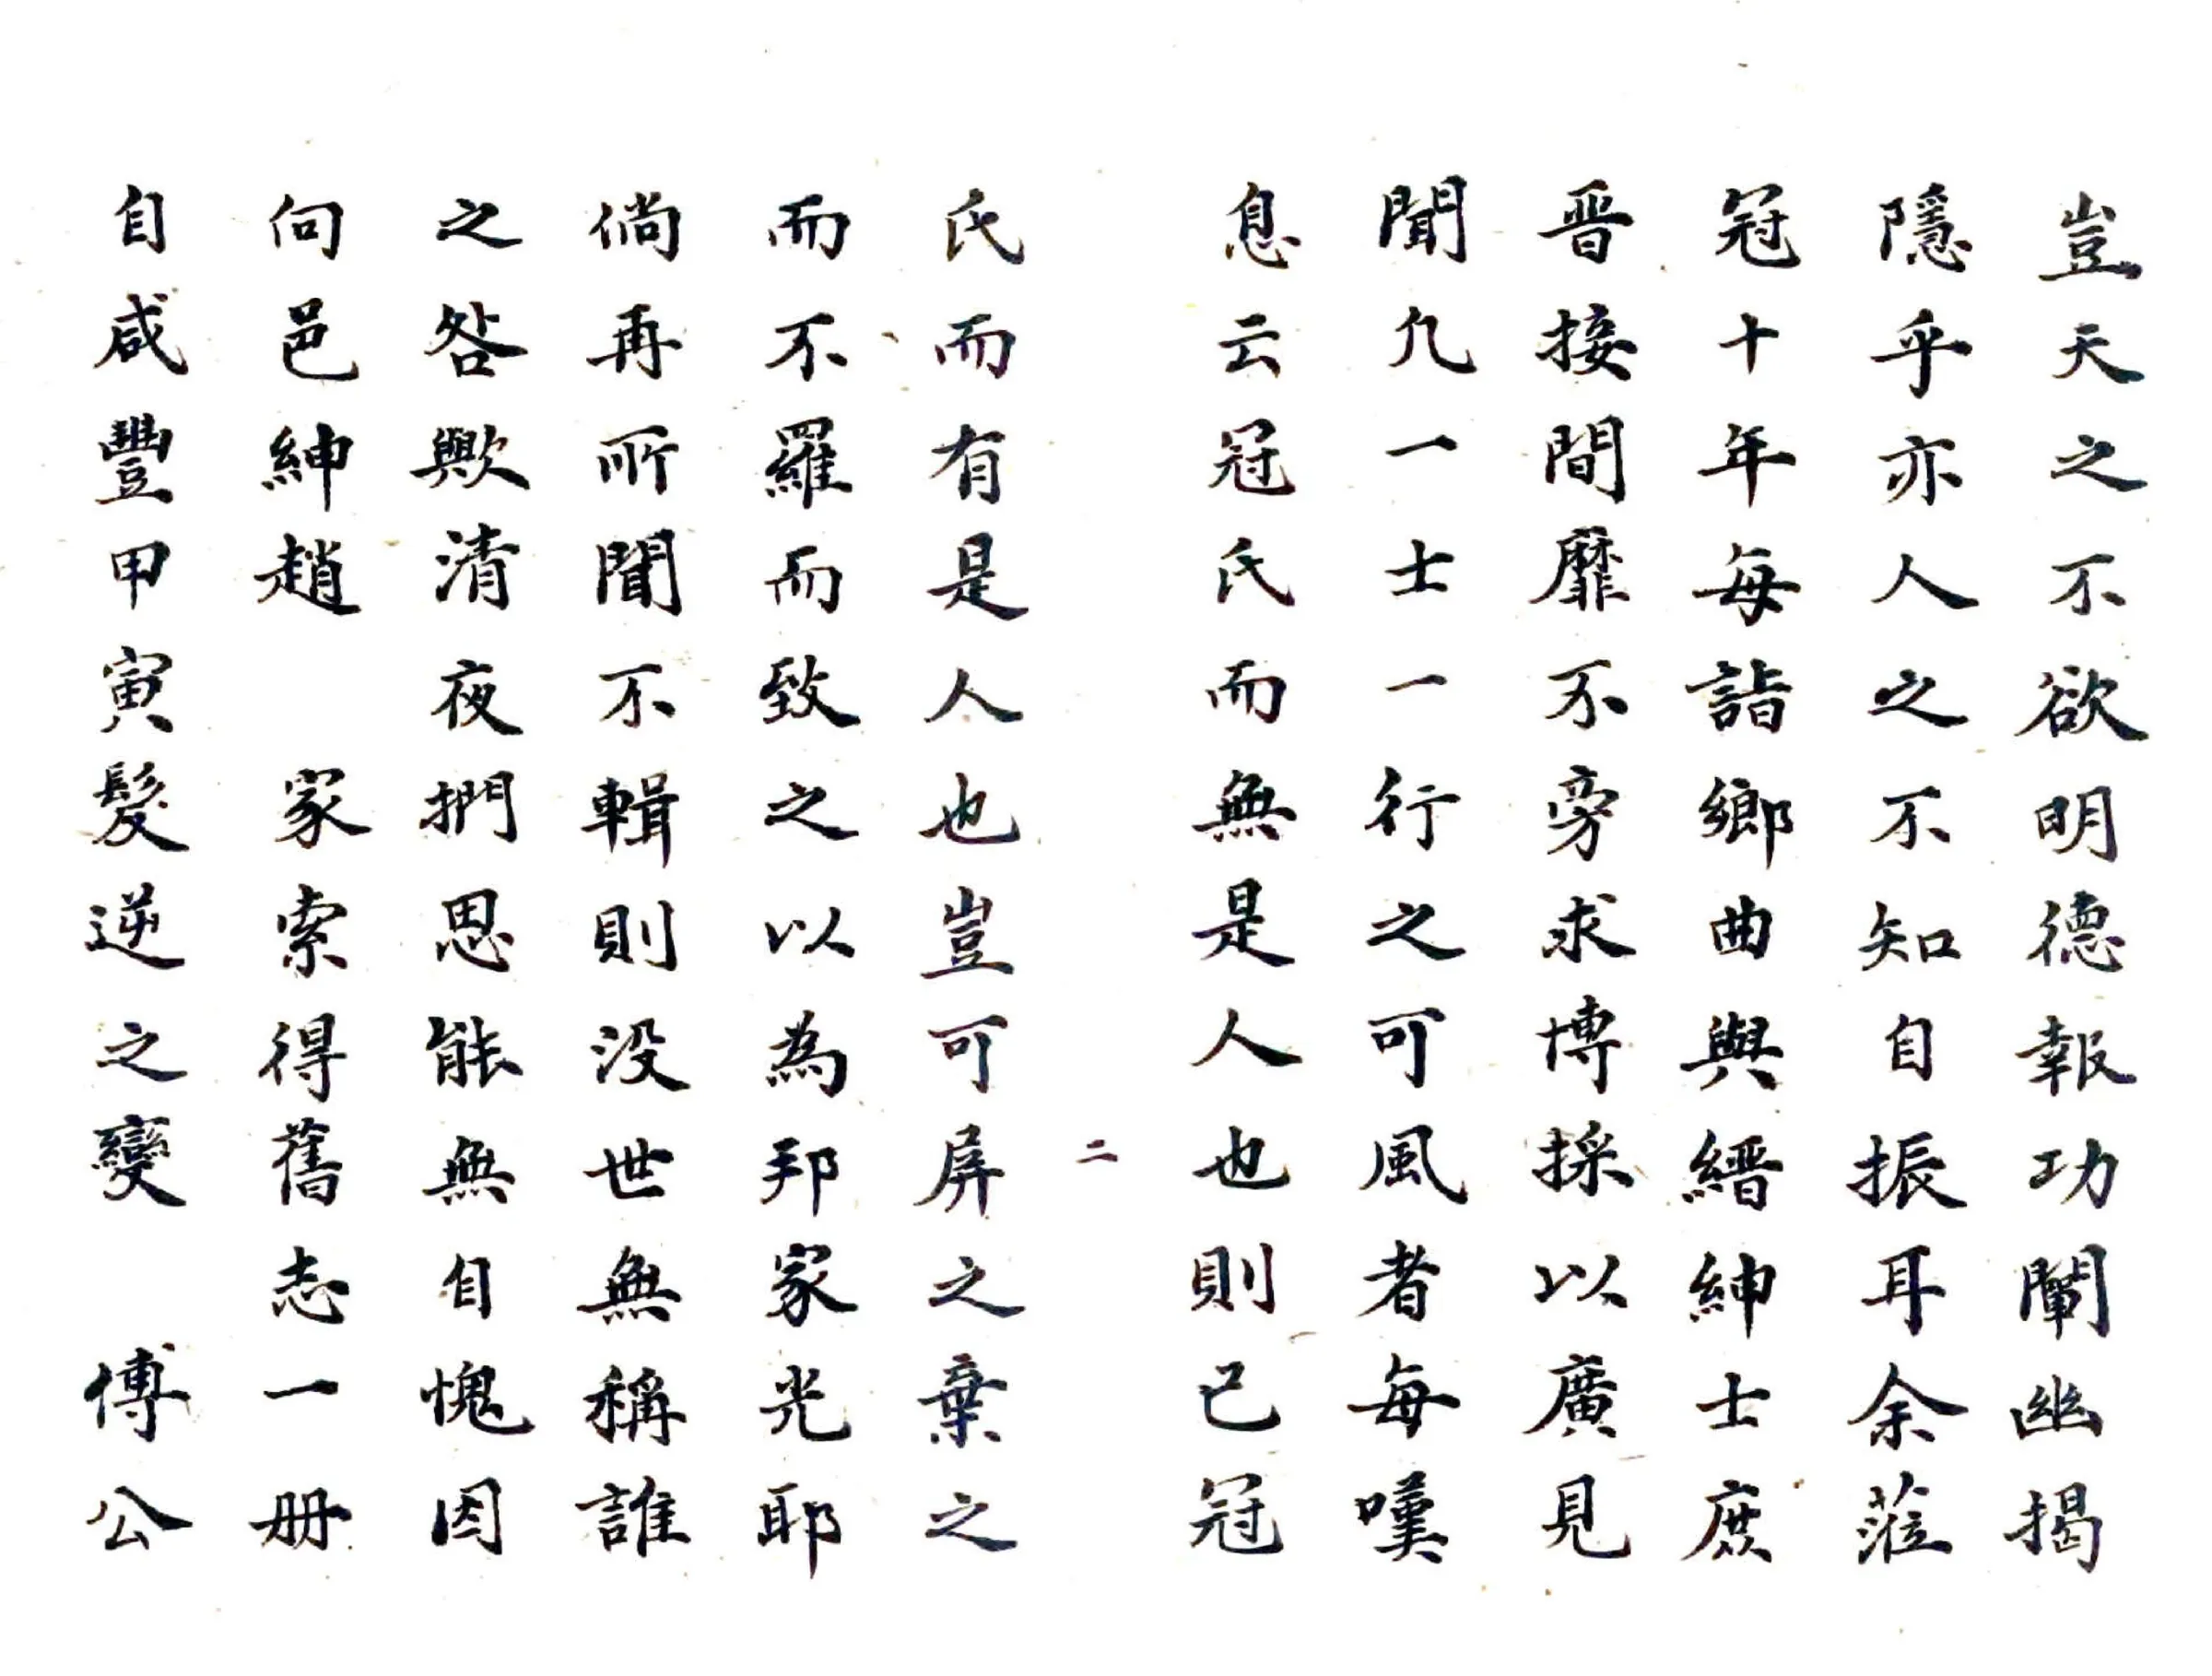 豈天之不欲明德報功闡幽揭
隱乎亦人之不知自振耳余蒞
冠十年每詣鄉曲與縉紳士庶
晋接間靡不旁求博採以廣見
聞凢一士一行之可風者每嘆
息云冠氏而無是人也則已冠
二
氏而有是人也豈可屏之棄之
而不羅而致之以為邦家光耶
倘再所聞不輯則没世無稱誰
之咎歟清夜捫思能無自愧因
向邑紳趙 家索得舊志一册
自咸豐甲寅髮逆之變 傅公